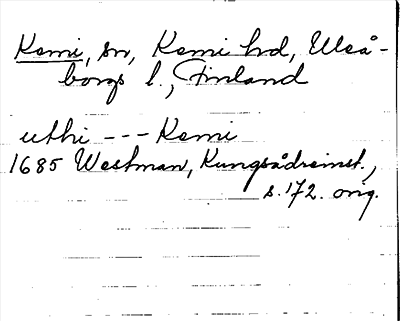 Kemi, sn, Kemi hd, Uleå-
borgs l., Finland
uthi --- Kemi
1685 Westman, Kungsådreinst.,
s. 172. orig.